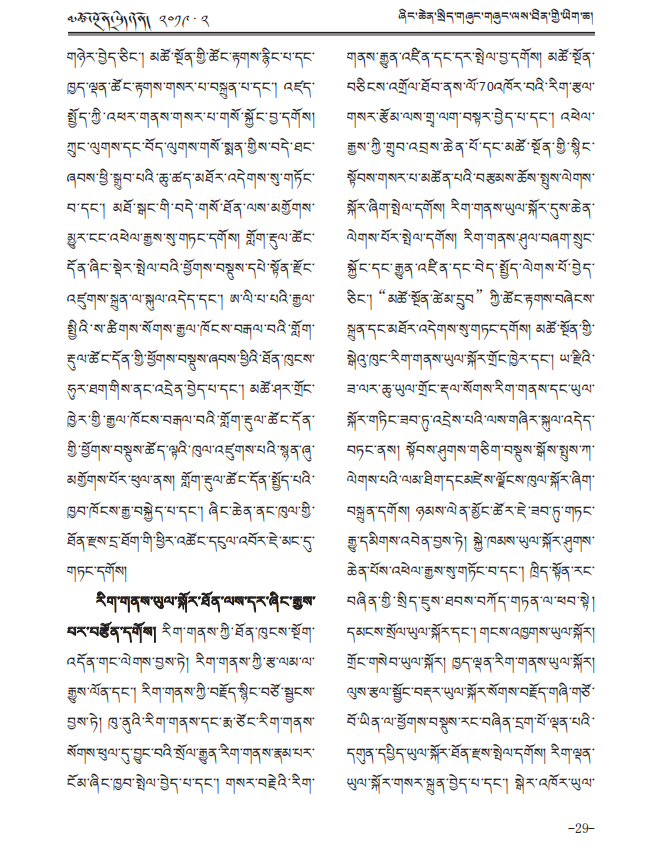 མཚོ་སྔོན་སྲིད་གཞུང་། ༢༠༡༩ · ༢
ཞིང་ཆེན་སྲིད་གཞུང་གཞུང་ལས་ཐིན་གྱི་ཡིག་ཆ།
གཉེར་བྱེད་ཅིང་། མཚོ་སྔོན་གྱི་ཚོང་རྟགས་རྙིང་པ་དང་
ཁྱད་ལྡན་ཚོང་རྟགས་གསར་པ་བསྐྲུན་པ་དང་། འཛད་
སྤྱོད་ཀྱི་འཕར་གནས་གསར་པ་གསོ་སྐྱོང་བྱ་དགོས།
ཀྲུང་ལུགས་དང་བོད་ལུགས་གསོ་སྨན་གྱིས་བདེ་ཐང་
ཞབས་ཕྱི་སྒྲུབ་པའི་ཆུ་ཚད་མཐོར་འདེགས་སུ་གཏོང་
བ་དང་། མཐོ་སྒང་གི་བདེ་གསོ་ཐོན་ལས་མགྱོགས་
མྱུར་ངང་འཕེལ་རྒྱས་སུ་གཏང་དགོས། གློག་རྡུལ་ཚོང་
དོན་ཞིང་སྡེར་སྤེལ་བའི་ཕྱོགས་བསྡུས་དཔེ་སྟོན་རྫོང་
འཛུགས་སྐྲུན་ལ་སྐུལ་འདེད་དང་། ཨ་ལི་པ་པའི་རྒྱལ་
སྤྱིའི་ས་ཚིགས་སོགས་རྒྱལ་ཁོངས་བརྒལ་བའི་གློག་
རྡུལ་ཚོང་དོན་གྱི་ཕྱོགས་བསྡུས་ཞབས་ཕྱིའི་ཐོན་ཁུངས་
ཧུར་ཐག་གིས་ནང་འདྲེན་བྱེད་པ་དང་། མཚོ་ཤར་གྲོང་
ཁྱེར་གྱི་རྒྱལ་ཁོངས་བརྒལ་བའི་གློག་རྡུལ་ཚོང་དོན་
གྱི་ཕྱོགས་བསྡུས་ཚོད་ལྟའི་ཁུལ་འཛུགས་པའི་སྙན་ཞུ་
མགྱོགས་པོར་ཕུལ་ནས། གློག་རྡུལ་ཚོང་དོན་སྤྱོད་པའི་
ཁྱབ་ཁོངས་རྒྱ་བསྐྱེད་པ་དང་། ཞིང་ཆེན་ནང་ཁུལ་གྱི་
ཐོན་རྫས་དྲ་ཐོག་གི་ཕྱིར་འཚོང་དངུལ་འབོར་ཇེ་མང་དུ་
གཏང་དགོས།
རིག་གནས་ཡུལ་སྐོར་ཐོན་ལས་དར་ཞིང་རྒྱས་
པར་བརྩོན་དགོས། རིག་གནས་ཀྱི་ཐོན་ཁུངས་སྔོག་
འདོན་གང་ལེགས་བྱས་ཏེ། རིག་གནས་ཀྱི་རྩ་ལམ་ལ་
རྒྱུས་ལོན་དང་། རིག་གནས་ཀྱི་བརྗོད་སྙིང་བཙོ་སྦྱངས་
བྱས་ཏེ། ཁུ་ནུའི་རིག་གནས་དང་རྨ་ཙོང་རིག་གནས་
སོགས་ཕུལ་དུ་བྱུང་བའི་སྲོལ་རྒྱུན་རིག་གནས་རྣམ་པར་
ངོམ་ཞིང་ཁྱབ་སྤེལ་བྱེད་པ་དང་། གསར་བརྗེའི་རིག་
གནས་རྒྱུན་འཛིན་དང་དར་སྤེལ་བྱ་དགོས། མཚོ་སྔོན་
བཅིངས་འགྲོལ་ཐོབ་ནས་ལོ་70འཁོར་བའི་རིག་རྩལ་
གསར་རྩོམ་ལས་གྲྭ་ལག་བསྟར་བྱེད་པ་དང་། འཕེལ་
རྒྱས་ཀྱི་གྲུབ་འབྲས་ཆེན་པོ་དང་མཚོ་སྔོན་གྱི་སྙིང་
སྟོབས་གསར་པ་མཚོན་པའི་བརྩམས་ཆོས་སྤུས་ལེགས་
སྐོར་ཞིག་སྤེལ་དགོས། རིག་གནས་ཡུལ་སྐོར་དུས་ཆེན་
ལེགས་པོར་སྤེལ་དགོས། རིག་གནས་ཤུལ་བཞག་སྲུང་
སྐྱོང་དང་རྒྱུན་འཛིན་དང་བེད་སྤྱོད་ལེགས་པོ་བྱེད་
ཅིང་། “མཚོ་སྔོན་ཚེམ་དྲུབ” ཀྱི་ཚོང་རྟགས་བཞེངས་
སྐྲུན་དང་མཐོར་འདེགས་སུ་གཏང་དགོས། མཚོ་སྔོན་གྱི་
སྒེའུ་ཁུང་རིག་གནས་ཡུལ་སྐོར་གྲོང་ཁྱེར་དང་། ཡ་རྫིའི་
ཟ་ལར་ཆུ་ཡུལ་གྲོང་རྡལ་སོགས་རིག་གནས་དང་ཡུལ་
སྐོར་གཏིང་ཟབ་ཏུ་འདྲེས་པའི་ལས་གཞིར་སྐུལ་འདེད་
བཏང་ནས། སྟོབས་ཤུགས་གཅིག་བསྡུས་སྒོས་སྤུས་ཀ་
ལེགས་པའི་ལམ་ཐིག་དང་མཛེས་ལྗོངས་ཁུལ་སྐོར་ཞིག་
བསྐྲུན་དགོས། ཉམས་ལེན་མྱོང་ཚོར་ཇེ་ཟབ་ཏུ་གཏང་
རྒྱུ་དམིགས་འབེན་བྱས་ཏེ། སྐྱེ་ཁམས་ཡུལ་སྐོར་ཤུགས་
ཆེན་པོས་འཕེལ་རྒྱས་སུ་གཏོང་བ་དང་། ཁྲིད་སྟོན་རང་
བཞིན་གྱི་སྲིད་ཇུས་ཐབས་བཀོད་གཏན་ལ་ཕབ་སྟེ།
དམངས་སྲོལ་ཡུལ་སྐོར་དང་། གངས་འཁྱགས་ཡུལ་སྐོར།
གྲོང་གསེབ་ཡུལ་སྐོར། ཁྱད་ལྡན་རིག་གནས་ཡུལ་སྐོར།
ལུས་རྩལ་སྦྱོང་བརྡར་ཡུལ་སྐོར་སོགས་བརྗོད་གཞི་གཙོ་
བོ་ཡིན་ལ་ཕྱོགས་བསྡུས་རང་བཞིན་དྲག་པོ་ལྡན་པའི་
དགུན་དཔྱིད་ཡུལ་སྐོར་ཐོན་རྫས་སྤེལ་དགོས། རིག་ལྡན་
ཡུལ་སྐོར་གསར་སྐྲུན་བྱེད་པ་དང་། སྒེར་འཁོར་ཡུལ་
-29-